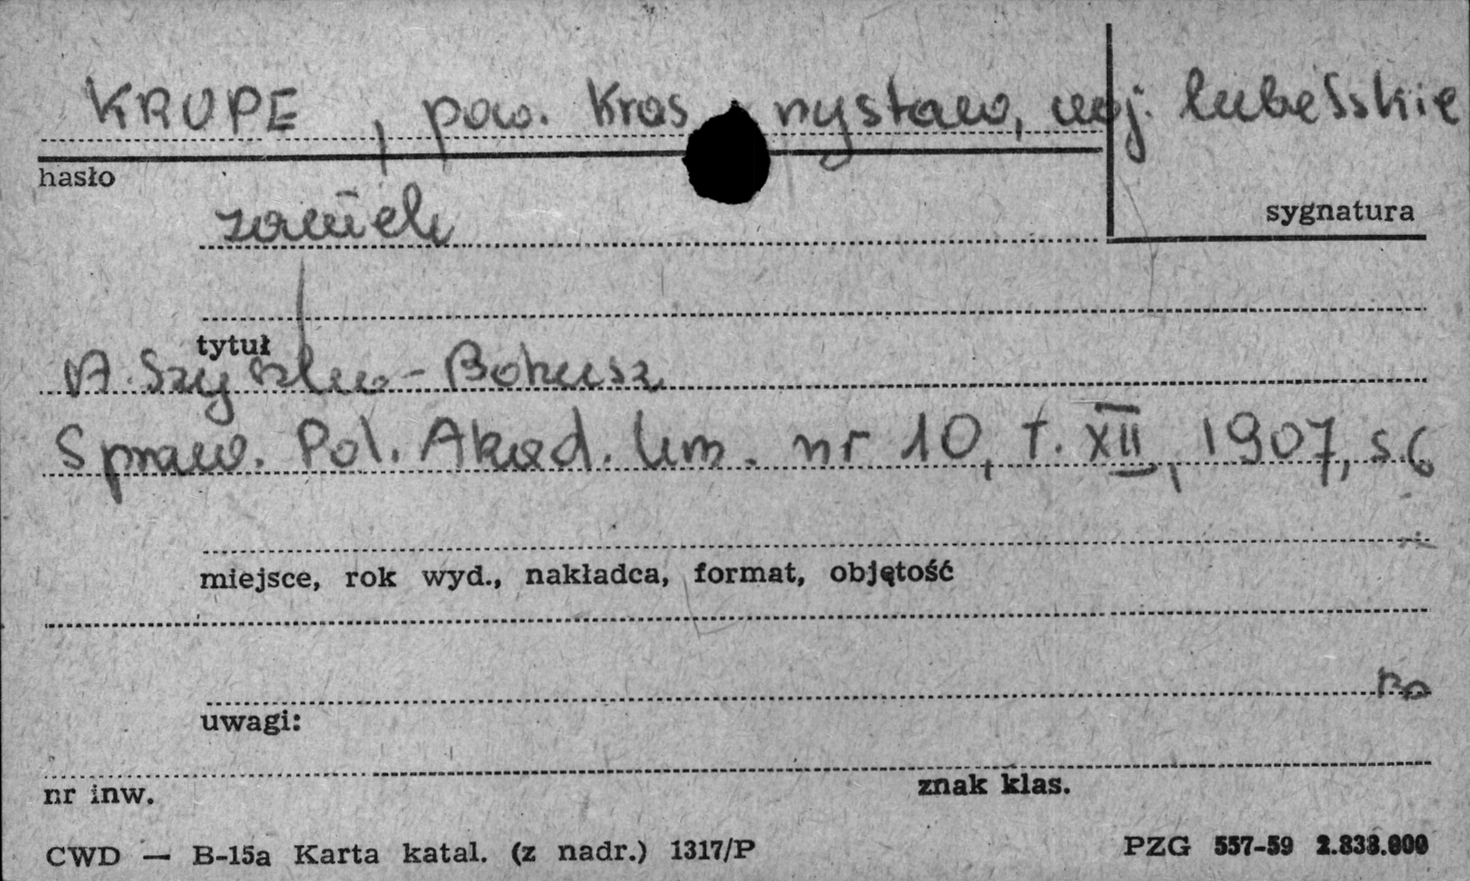 KRUPE, pow. Krasnystaw, woj. lubelskie
hasło
sygnatura
zamek
tytuł
A. Szyszko-Bohusz
Spraw. Pol. Akad. Um. nr 10, t. XII, 1907, s. 6
miejsce, rok wyd., nakładca, format, objętość
uwagi:
nr inw.
znak klas.
CWD — B-15a Karta katal. (z nadr.) 1317/P
PZG 557-59 2.838.000